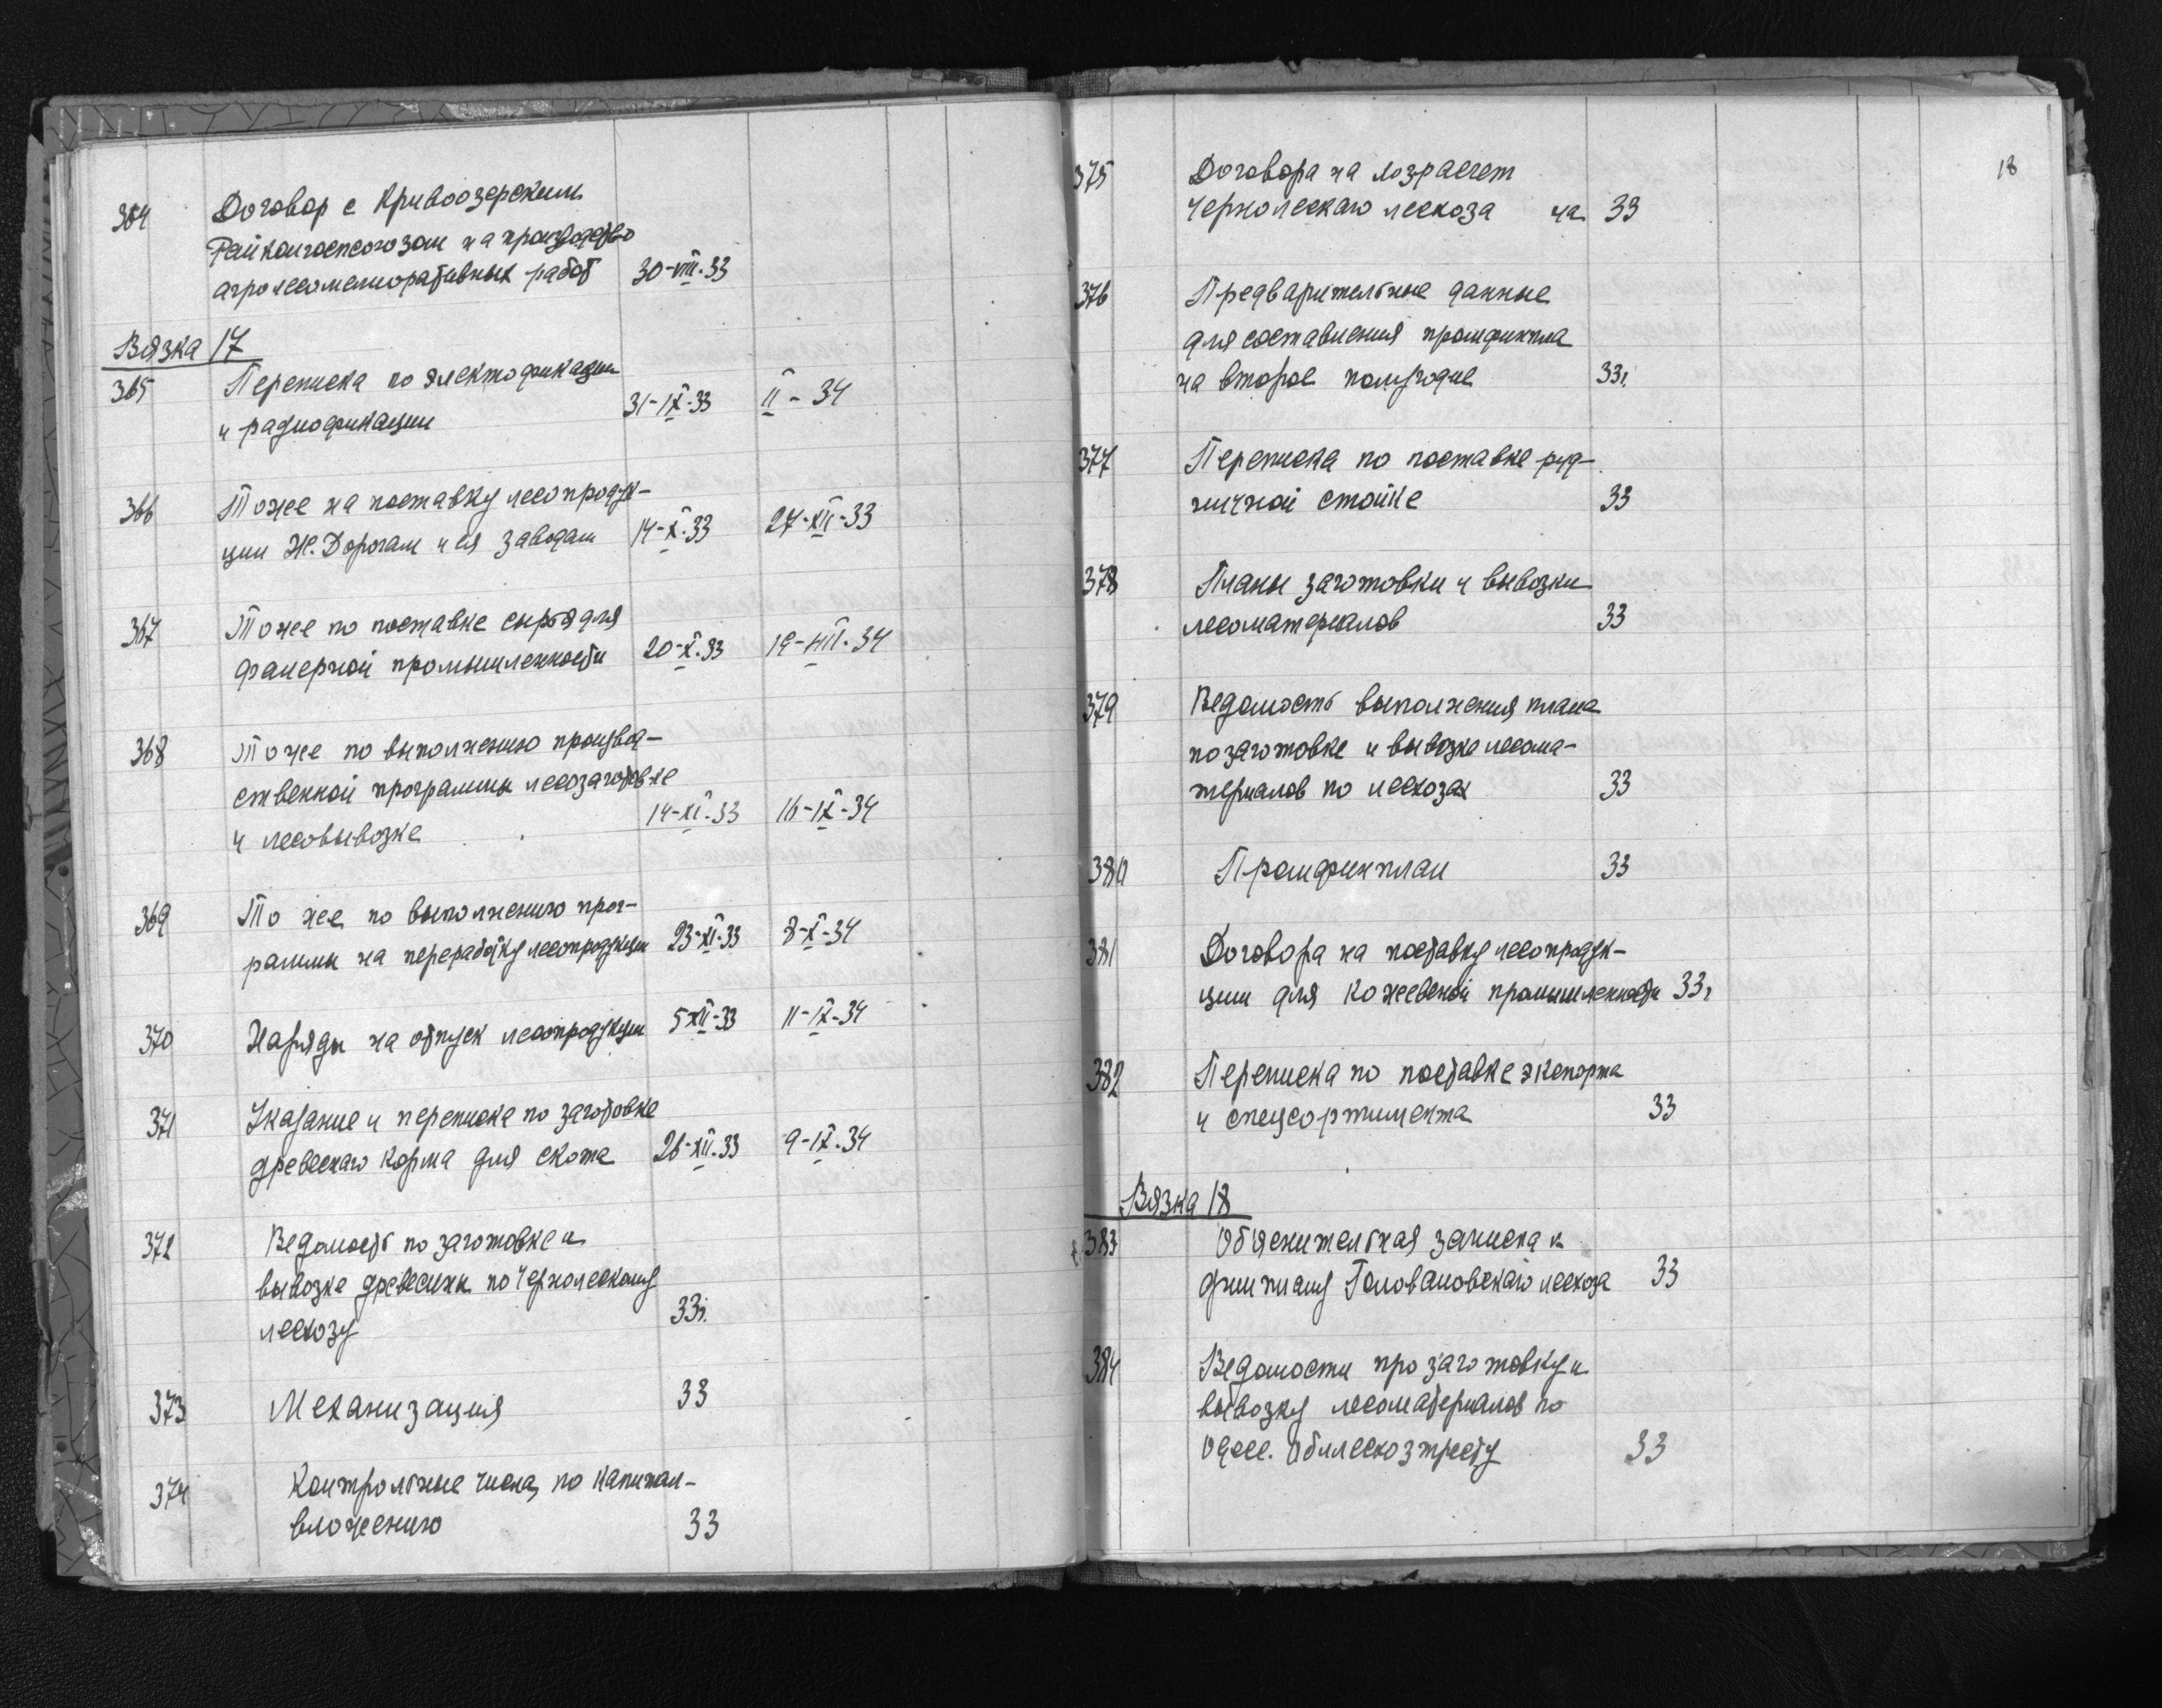 364 Договор с Кривоозерским
Райколгоспсоюзом на производство
агролесомелиоративных работ 30-VIII-33
Вязка 17
365 Переписка по электофикации
и радиофикации 31-IX-33 II-34
366 Тоже на поставку лесопродук-
ции Ж. Дорогам и ея заводам 14-X-33 27-XII-33
367 Тоже по поставке сырья для
фанерной промышленности 20-X-33 19-VIII-34
368 Тоже по выполнению производ-
ственной программы лесозаготовке
и лесовывозке 14-XI-33 16-IX-34
369 То же по выполнению прог-
раммы на переработку лесопродукции 23-XI-33 8-X-34
370 Наряды на отпуск лесопродукции 5-XII-33 11-IX-34
371 Указание и переписка по заготовке
древеснаго корма для скота 26-XII-33 9-IX-34
372 Ведомость по заготовке и
вывозке древесины по Чернолескому
лесхозу 33г.
373 Механизация 33
374 Контрольные числа по капитал-
вложению 33
18
375 Договора на хозрасчет
Чернолескаго лесхоза на 33
376 Предварительные данные
для составления промфинпла
на второе полугодие 33г.
377 Переписка по поставке руд-
ничной стойке 33
378 Планы заготовки и вывозки
лесоматериалов 33
379 Ведомость выполнения плана
по заготовке и вывозке лесома-
териалов по лесхозах 33
380 Промфинплан 33
381 Договора на поставку лесопродук-
ции для кожевеной промышленности 33г
382 Переписка по поставке экспорта
и спецсортимента 33
Вязка 18
383 Обяснительная записка к
финплану Головановскаго лесхоза 33
384 Ведомости про заготовку и
вывозку лесоматериалов по
Одесс. Обллесхозтресту 33